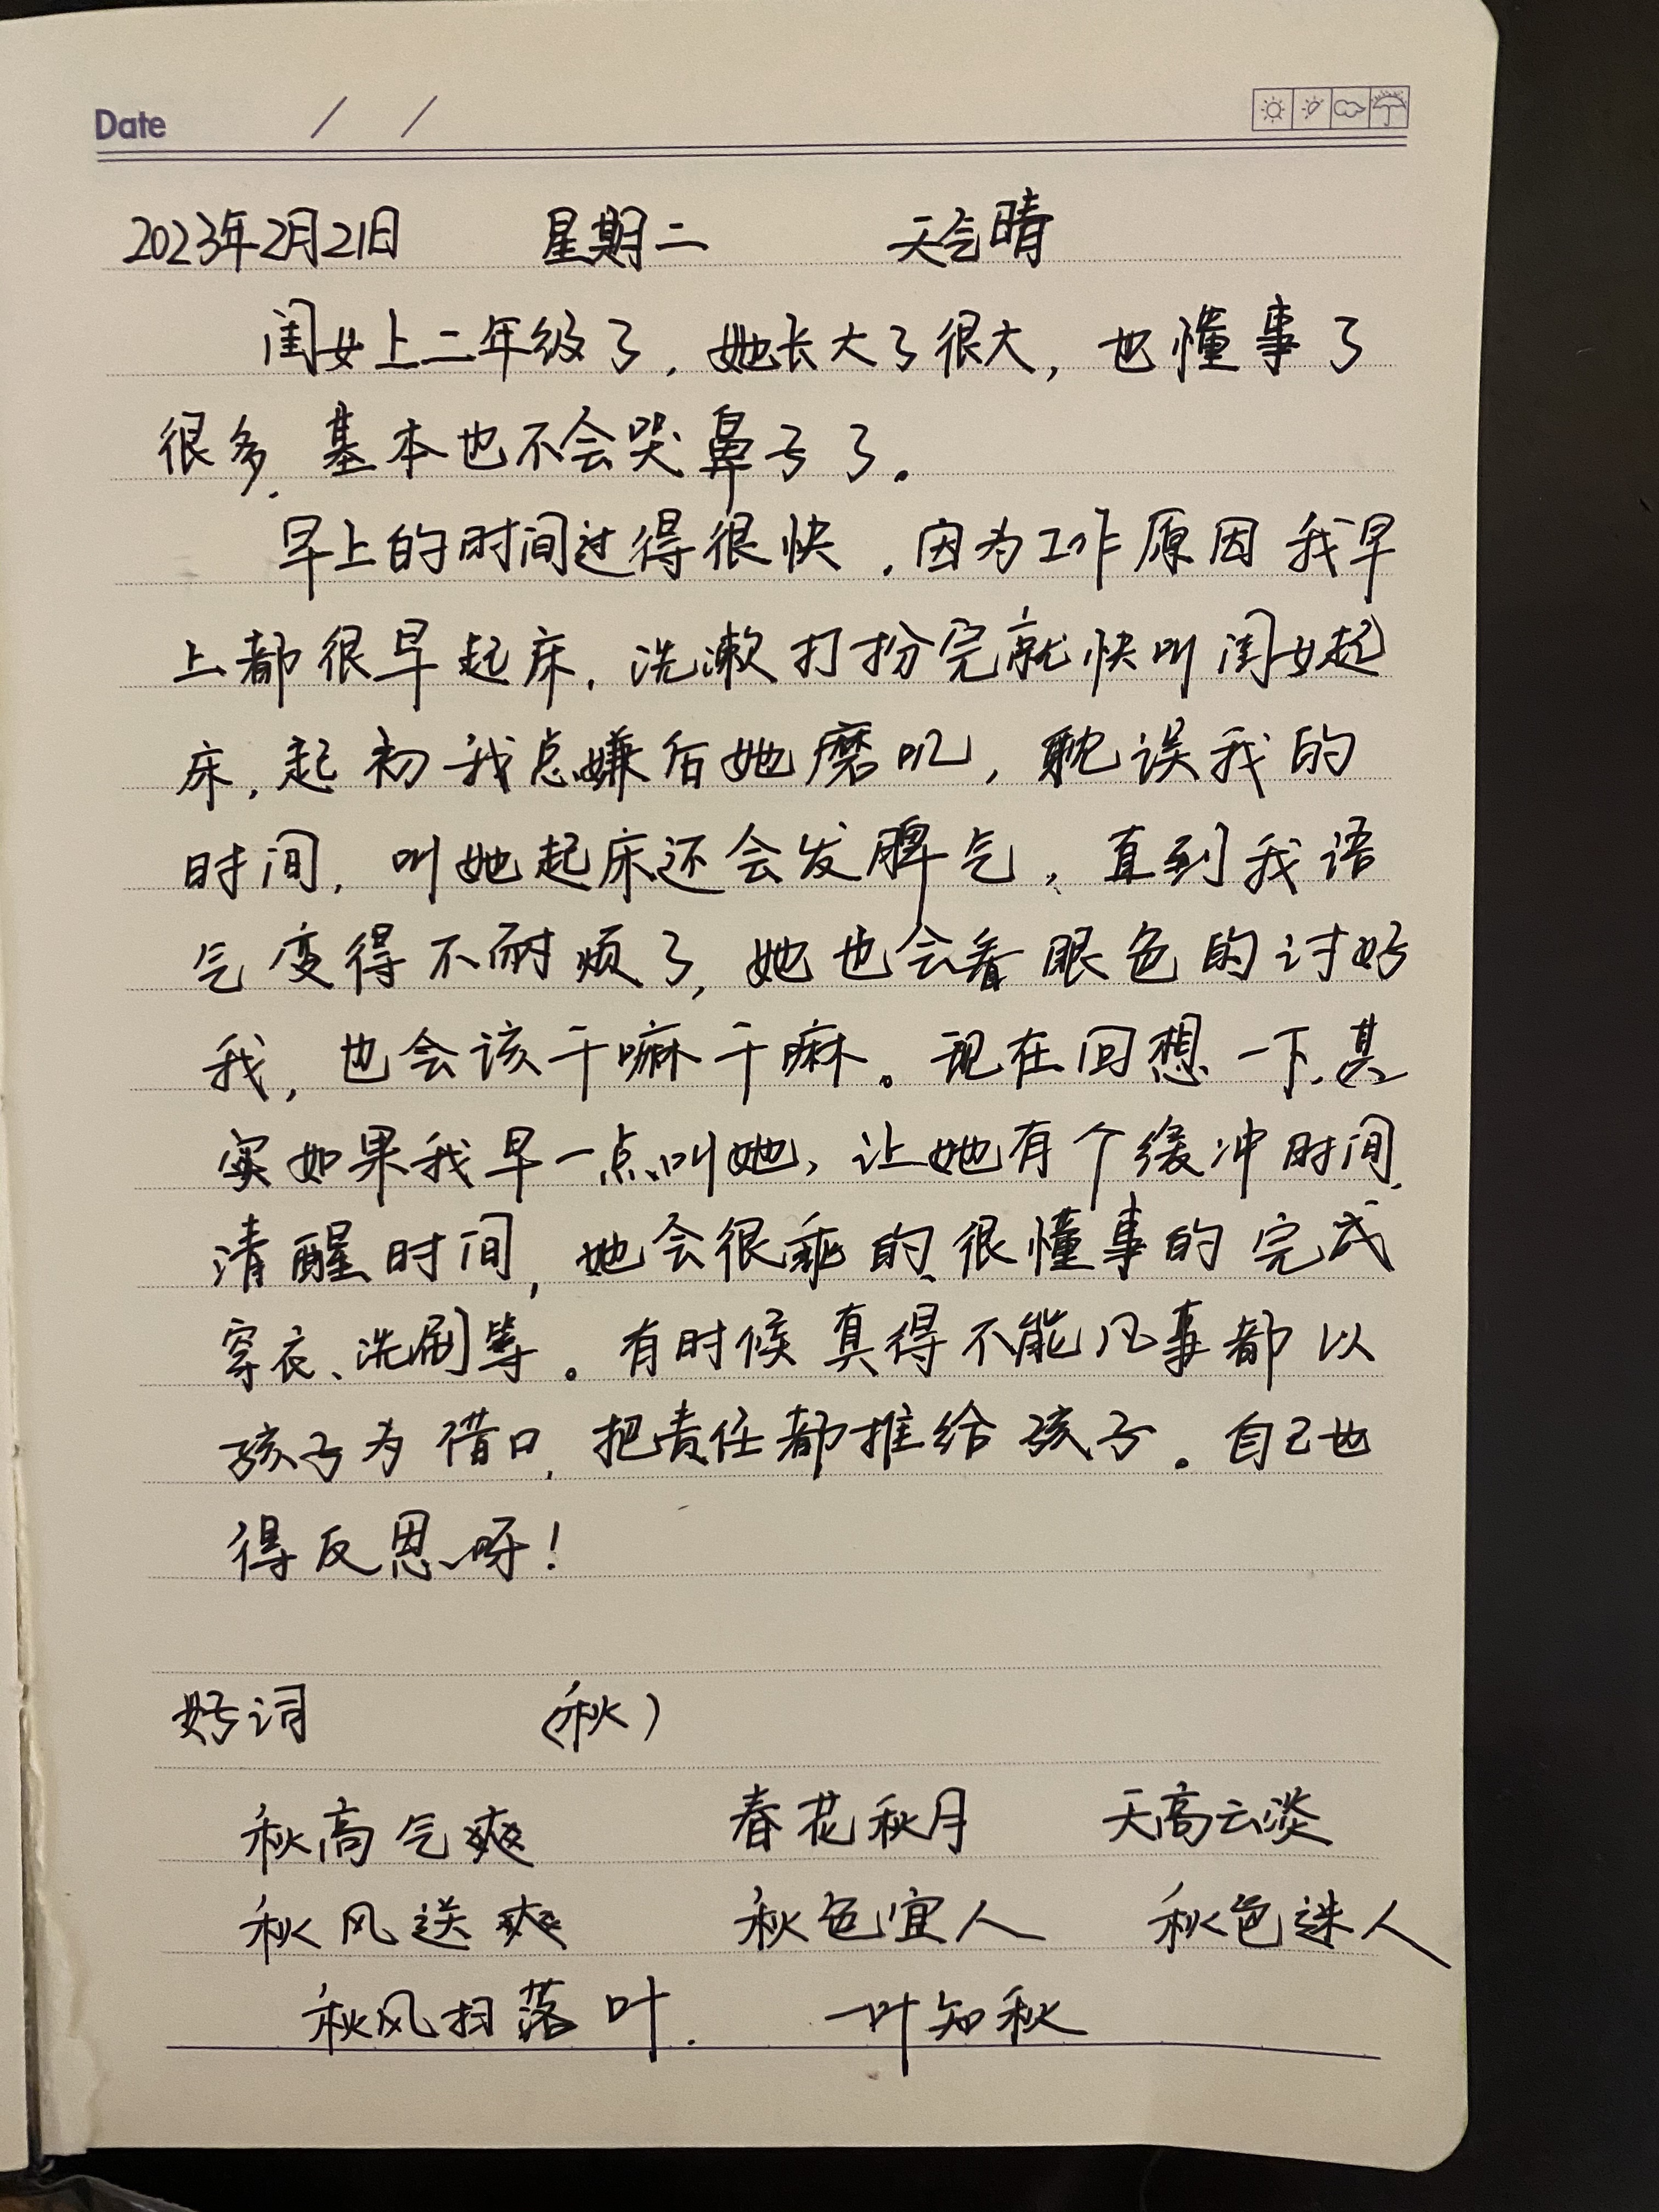 Date / /
2023年2月21日 星期二 天气晴
闺女上二年级了，她长大了很大，也懂事了
很多，基本也不会哭鼻子了。
早上的时间过得很快，因为工作原因我早
上都很早起床，洗漱打扮完就快叫闺女起
床，起初我总嫌后她磨叽，耽误我的
时间，叫她起床还会发脾气，直到我语
气变得不耐烦了，她也会看眼色的讨好
我，也会该干嘛干嘛。现在回想一下，其
实如果我早一点叫她，让她有个缓冲时间，
清醒时间，她会很乖的、很懂事的完成
穿衣、洗刷等。有时候真得不能凡事都以
孩子为借口，把责任都推给孩子。自己也
得反思呀！
好词 （秋）
秋高气爽 春花秋月 天高云淡
秋风送爽 秋色宜人 秋色迷人
秋风扫落叶. 一叶知秋